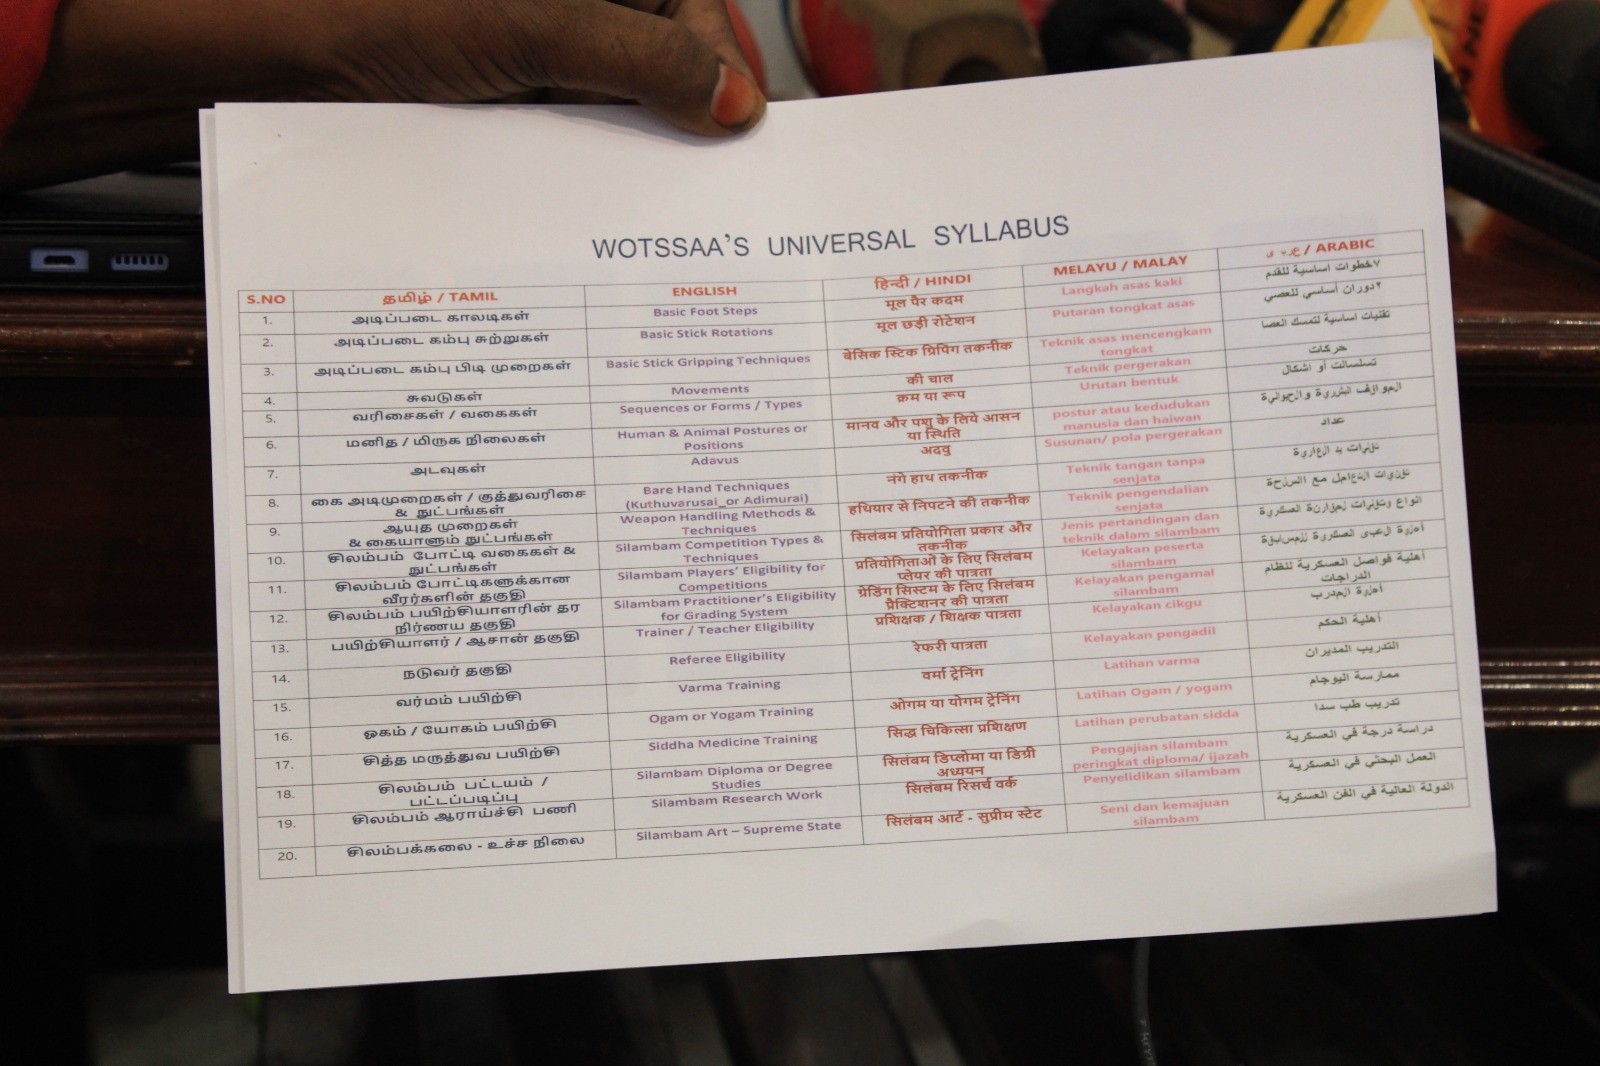 WOTSSAA'S UNIVERSAL SYLLABUS
S.NO தமிழ் / TAMIL ENGLISH हिन्दी / HINDI MELAYU / MALAY / ARABIC
1. அடிப்படை காலடிகள் Basic Foot Steps मूल पैर कदम Langkah asas kaki ٧خطوات اساسية للقدم
2. அடிப்படை கம்பு சுற்றுகள் Basic Stick Rotations मूल छड़ी रोटेशन Putaran tongkat asas ٢دوران أساسي للعصي
3. அடிப்படை கம்பு பிடி முறைகள் Basic Stick Gripping Techniques बेसिक स्टिक ग्रिपिंग तकनीक Teknik asas mencengkam تقنيات اساسية لتمسك العصا
tongkat
4. சுவடுகள் Movements की चाल Teknik pergerakan حركات
5. வரிசைகள் / வகைகள் Sequences or Forms / Types क्रम या रूप Urutan bentuk تسلسالت أو اشكال
6. மனித / மிருக நிலைகள் Human & Animal Postures or मानव और पशु के लिये आसन postur atau kedudukan
Positions या स्थिति manusia dan haiwan
7. அடவுகள் Adavus अदवु Susunan/ pola pergerakan عداد
8. கை அடிமுறைகள் / குத்துவரிசை Bare Hand Techniques नंगे हाथ तकनीक Teknik tangan tanpa
& நுட்பங்கள் (Kuthuvarusai_or Adimurai) senjata
9. ஆயுத முறைகள் Weapon Handling Methods & हथियार से निपटने की तकनीक Teknik pengendalian
& கையாளும் நுட்பங்கள் Techniques senjata
10. சிலம்பம் போட்டி வகைகள் & Silambam Competition Types & सिलंबम प्रतियोगिता प्रकार और Jenis pertandingan dan
நுட்பங்கள் Techniques तकनीक teknik dalam silambam
11. சிலம்பம் போட்டிகளுக்கான Silambam Players' Eligibility for प्रतियोगिताओं के लिए सिलंबम Kelayakan peserta
வீரர்களின் தகுதி Competitions प्लेयर की पात्रता silambam
12. சிலம்பம் பயிற்சியாளரின் தர Silambam Practitioner's Eligibility ग्रेडिंग सिस्टम के लिए सिलंबम Kelayakan pengamal أهلية فواصل العسكرية لنظام
நிர்ணய தகுதி for Grading System प्रैक्टिशनर की पात्रता silambam الدراجات
13. பயிற்சியாளர் / ஆசான் தகுதி Trainer / Teacher Eligibility प्रशिक्षक / शिक्षक पात्रता Kelayakan cikgu
14. நடுவர் தகுதி Referee Eligibility रेफरी पात्रता Kelayakan pengadil أهلية الحكم
15. வர்மம் பயிற்சி Varma Training वर्मा ट्रेनिंग Latihan varma التدريب المديران
16. ஓகம் / யோகம் பயிற்சி Ogam or Yogam Training ओगम या योगम ट्रेनिंग Latihan Ogam / yogam ممارسة اليوجام
17. சித்த மருத்துவ பயிற்சி Siddha Medicine Training सिद्ध चिकित्सा प्रशिक्षण Latihan perubatan sidda تدريب طب سدا
18. சிலம்பம் பட்டயம் / Silambam Diploma or Degree सिलंबम डिप्लोमा या डिग्री Pengajian silambam دراسة درجة في العسكرية
பட்டப்படிப்பு Studies अध्ययन peringkat diploma/ ijazah
19. சிலம்பம் ஆராய்ச்சி பணி Silambam Research Work सिलंबम रिसर्च वर्क Penyelidikan silambam العمل البحثي في العسكرية
20. சிலம்பக்கலை - உச்ச நிலை Silambam Art – Supreme State सिलंबम आर्ट - सुप्रीम स्टेट Seni dan kemajuan الدولة العالية في الفن العسكرية
silambam